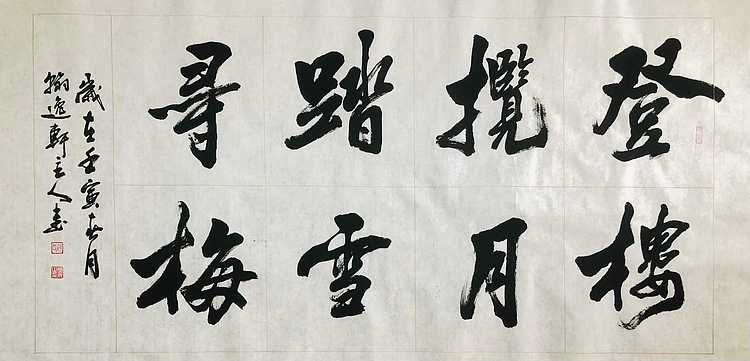 登樓
攬月
踏雪
尋梅
歲在壬寅春月
翰逸軒主人書